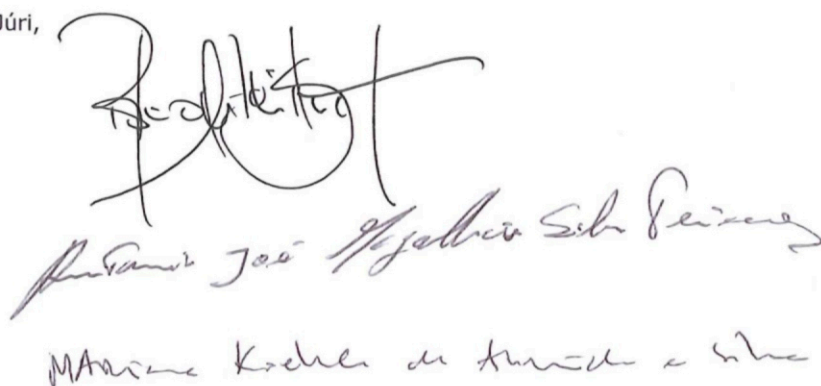 Júri,
António José Magalhães Silva Teixeira
Mariana Kaehler de Almeida e Silva